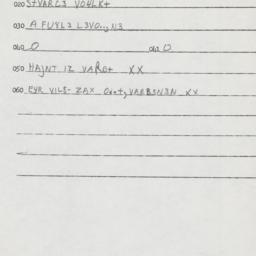 020 STVARC3 VO4LK+
030 A FUYL2 L3VO.., N3
040 O 042 O
050 HAJNT IZ VARC+ XX
060 EYR VILS- ZAX VARBSN3N XX